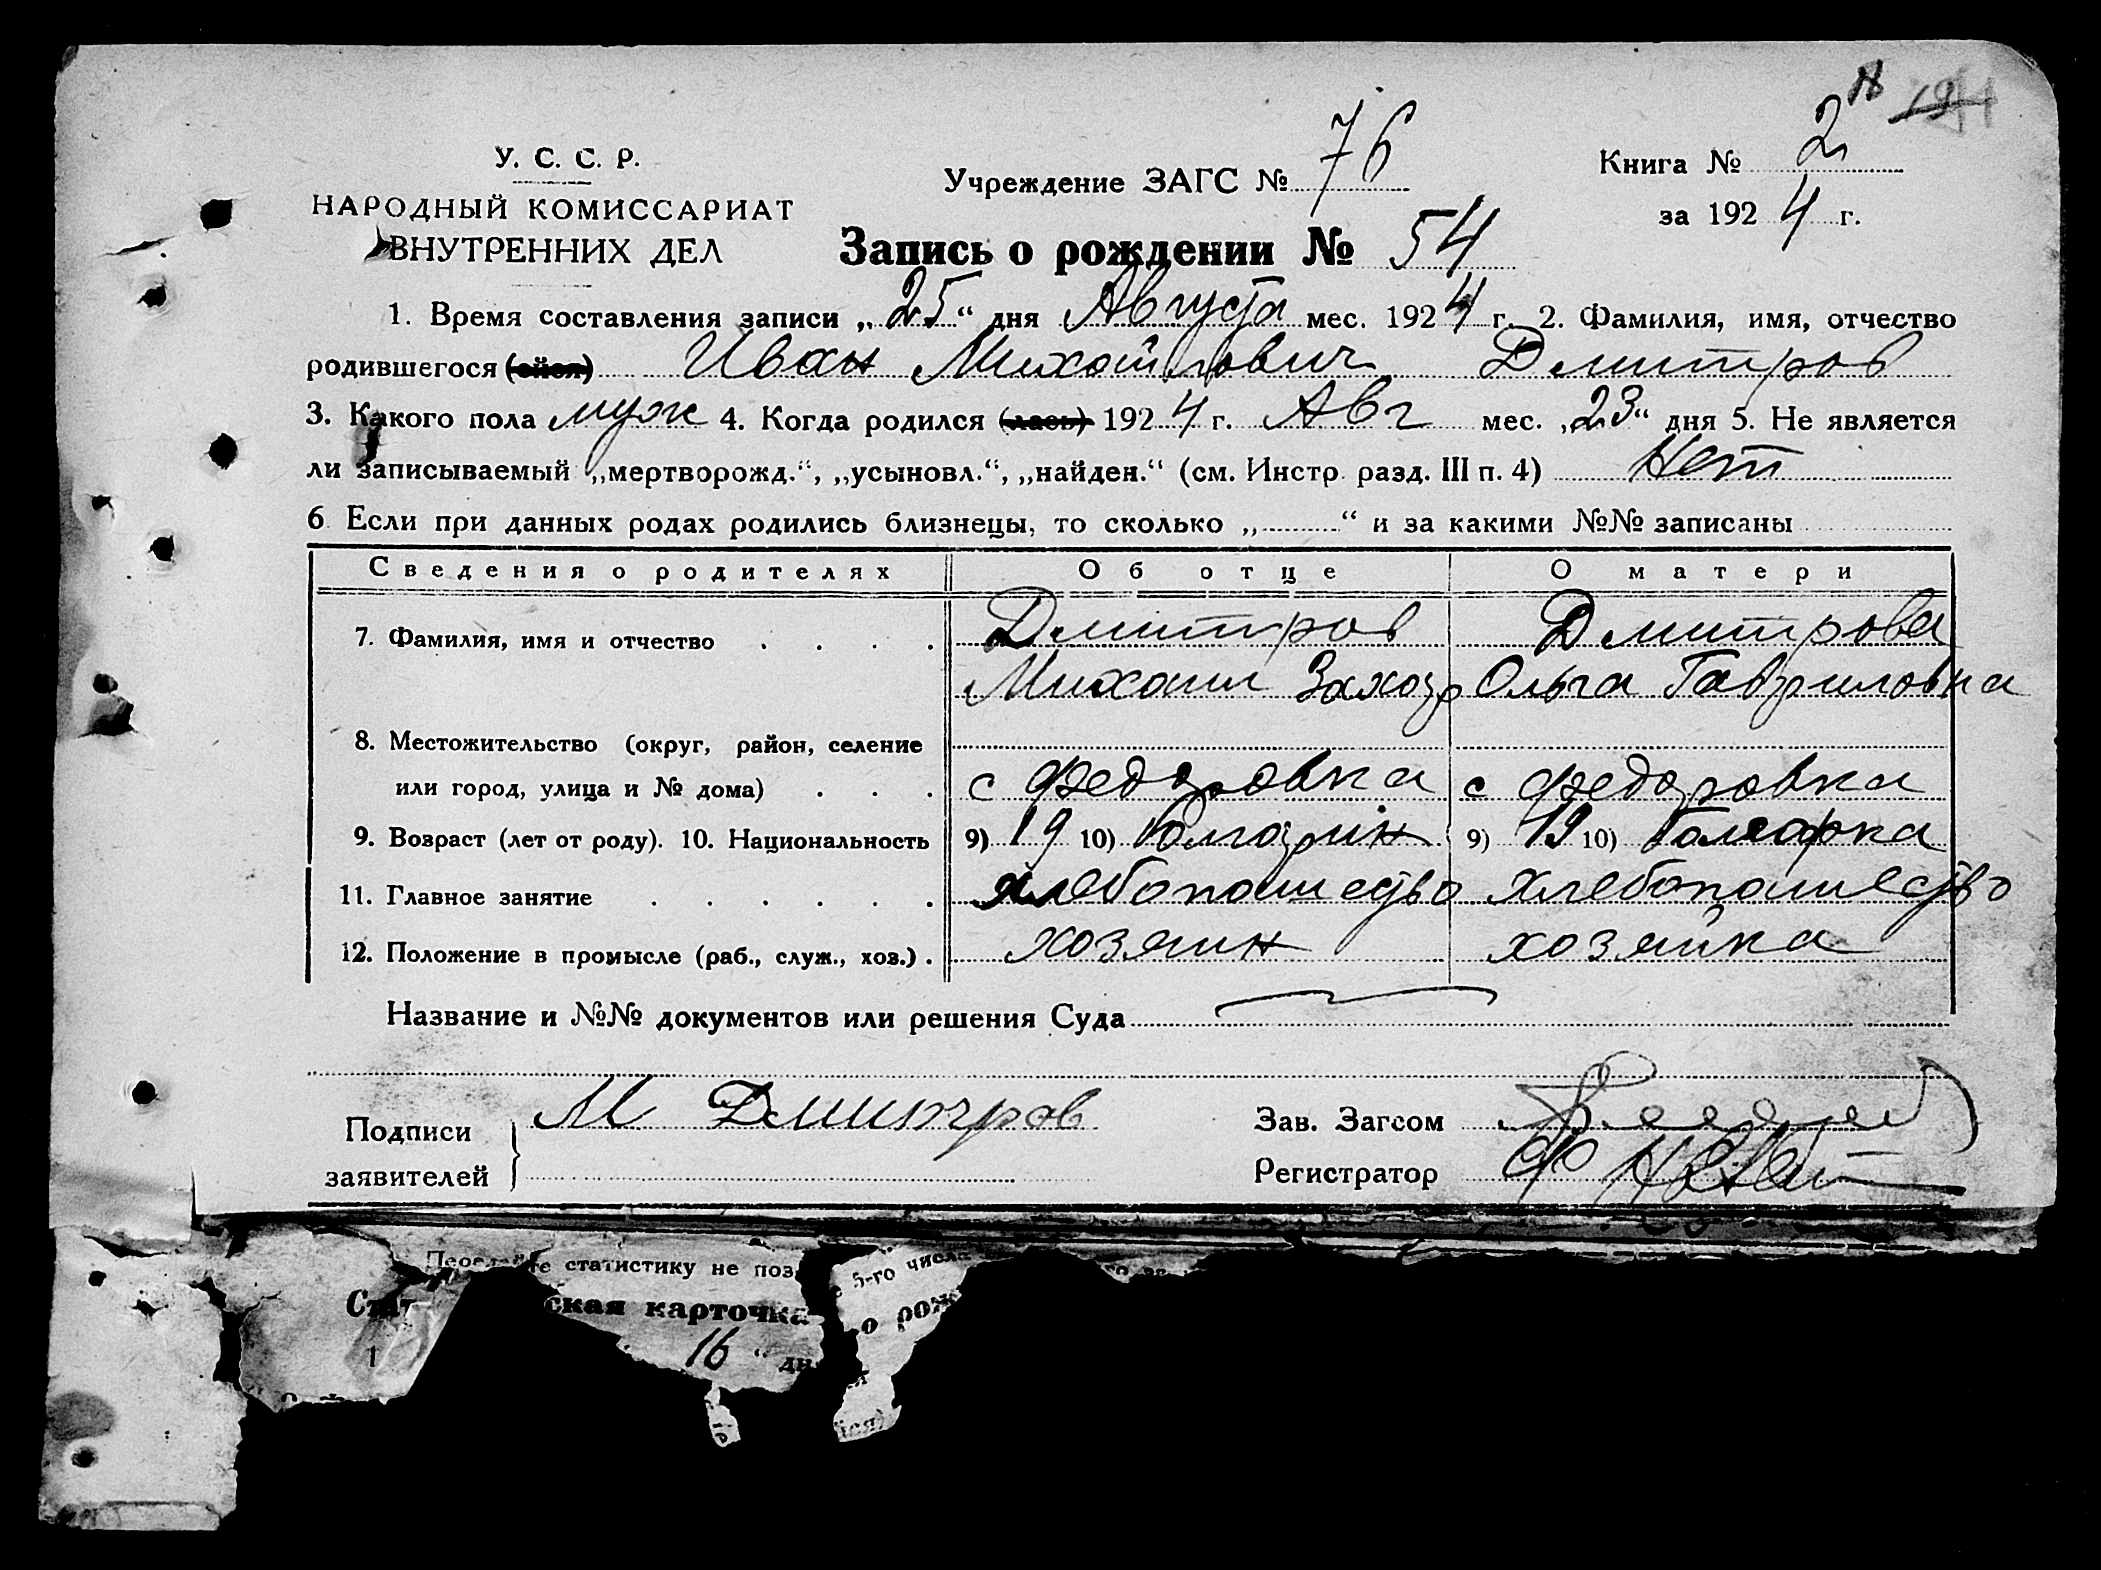 У. С. С. Р.
НАРОДНЫЙ КОМИССАРИАТ
ВНУТРЕННИХ ДЕЛ
Учреждение ЗАГС № 76
Книга № 2
за 1924 г.
Запись о рождении № 54
1. Время составления записи „25“ дня Августа мес. 1924 г. 2. Фамилия, имя, отчество
родившегося (ейся) Иван Михайлович Дмитров
3. Какого пола муж 4. Когда родился (лась) 1924 г. Авг мес. „23“ дня 5. Не является
ли записываемый „мертворожд.“, „усыновл.“, „найден.“ (см. Инстр. разд. III п. 4) Нет
6 Если при данных родах родились близнецы, то сколько „ “ и за какими №№ записаны
Сведения о родителях Об отце О матери
7. Фамилия, имя и отчество . . . . Дмитров Дмитрова
Михаил Захар Ольга Гавриловна
8. Местожительство (округ, район, селение
или город, улица и № дома) . . . с Федоровка с Федоровка
9. Возраст (лет от роду). 10. Национальность 9) 19 10) Болгарин 9) 19 10) Болгарка
11. Главное занятие . . . . . . хлебопашество хлебопашество
12. Положение в промысле (раб., служ., хоз.) . хозяин хозяйка
Название и №№ документов или решения Суда
Подписи
заявителей
М Дмитров
Зав. Загсом
Регистратор
статистику не поз
5-го числа
ская карточка
о рож
1
16 “ дн